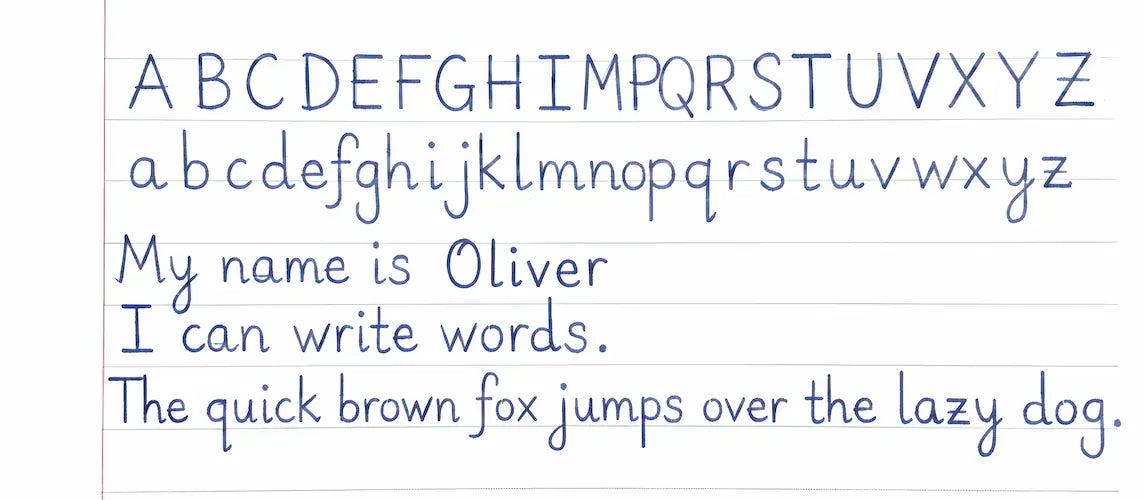 A B C D E F G H I M P Q R S T U V X Y Z
a b c d e f g h i j k l m n o p q r s t u v w x y z
My name is Oliver
I can write words.
The quick brown fox jumps over the lazy dog.